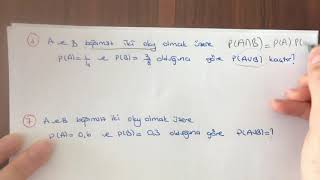 6 A ve B bağımsız iki olay olmak üzere P(A∩B)=P(A) P(
P(A)=1/4 ve P(B)= olduğuna göre P(A∪B) kaçtır?
7 A ve B bağımsız iki olay olmak üzere
P(A)=0,6 ve P(B)=0,3 olduğuna göre P(A∪B)=?